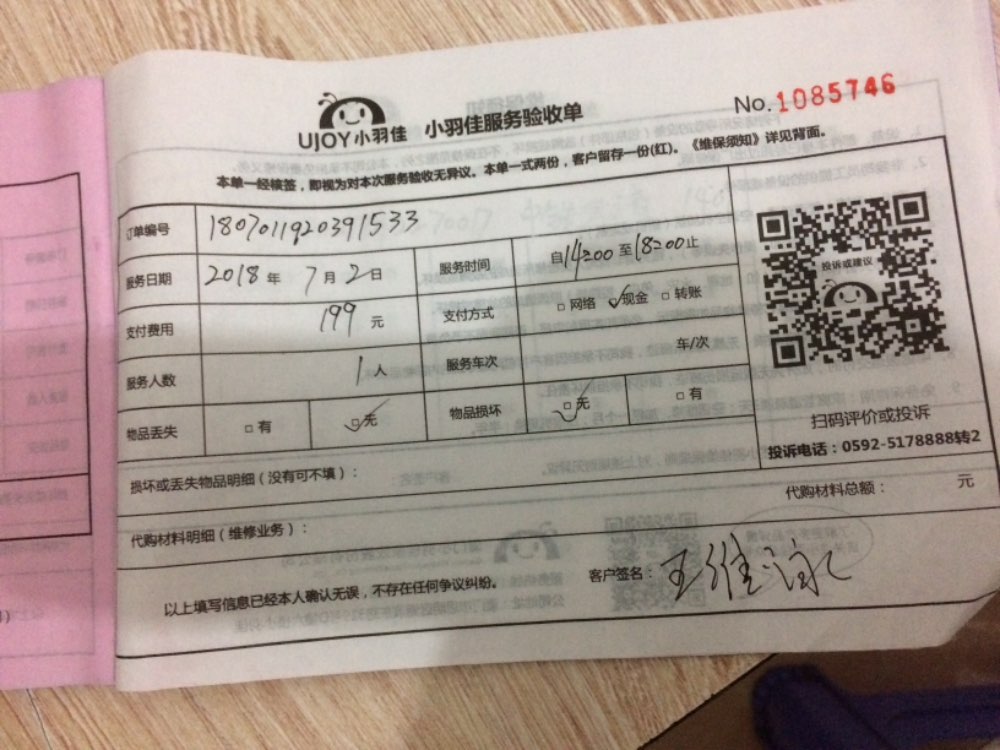 No.1085746
UJOY小羽佳 小羽佳服务验收单
本单一经核签，即视为对本次服务验收无异议。本单一式两份，客户留存一份(红)。《维保须知》详见背面。
订单编号 1807011920391533
服务日期 2018年7月2日 服务时间 自14:00至18:00止
支付费用 199元 支付方式 □网络 ☑现金 □转账
服务人数 1人 服务车次 车/次
物品丢失 □有 ☑无 物品损坏 ☑无 □有
投诉或建议
扫码评价或投诉
投诉电话：0592-5178888转2
损坏或丢失物品明细（没有可不填）：
代购材料明细（维修业务）： 代购材料总额： 元
以上填写信息已经本人确认无误，不存在任何争议纠纷。 客户签名：王维